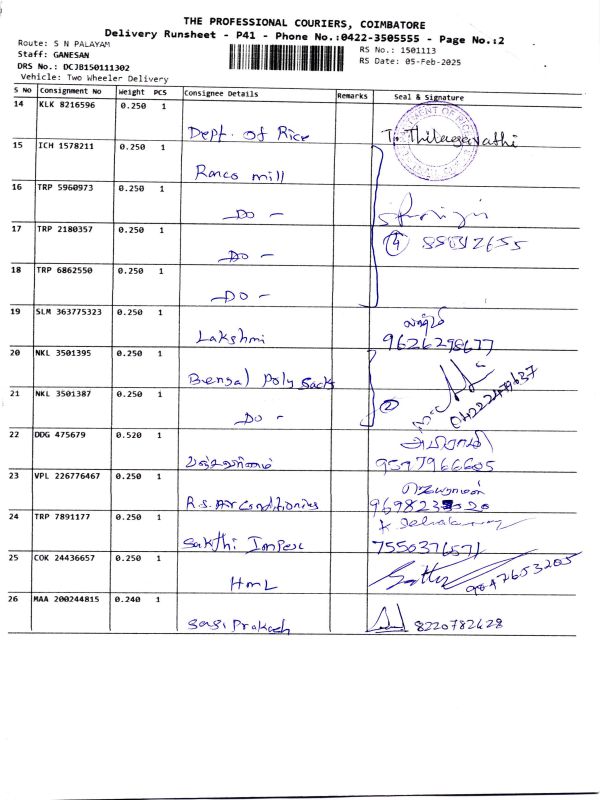 THE PROFESSIONAL COURIERS, COIMBATORE
Delivery Runsheet - P41 - Phone No.:0422-3505555 - Page No.:2
Route: S N PALAYAM
Staff: GANESAN
DRS No.: DCJB150111302
Vehicle: Two Wheeler Delivery
RS No.: 1501113
RS Date: 05-Feb-2025
S No Consignment No Weight PCS Consignee Details Remarks Seal & Signature
14 KLK 8216596 0.250 1 Dept. of Rice T. Thilagavathi
15 ICH 1578211 0.250 1 Ranco mill
16 TRP 5960973 0.250 1 - Do -
17 TRP 2180357 0.250 1 - Do - 4
18 TRP 6862550 0.250 1 - Do -
19 SLM 363775323 0.250 1 Lakshmi 9626298677
20 NKL 3501395 0.250 1 Bengal Poly Sacks
21 NKL 3501387 0.250 1 - Do - 2 04222479637
22 DDG 475679 0.520 1
23 VPL 226776467 0.250 1 R.S. Air Conditioning
24 TRP 7891177 0.250 1 Sakthi Impex 7550376571
25 COK 24436657 0.250 1 HML 9047653205
26 MAA 200244815 0.240 1 Sasi Prakash 8220782628